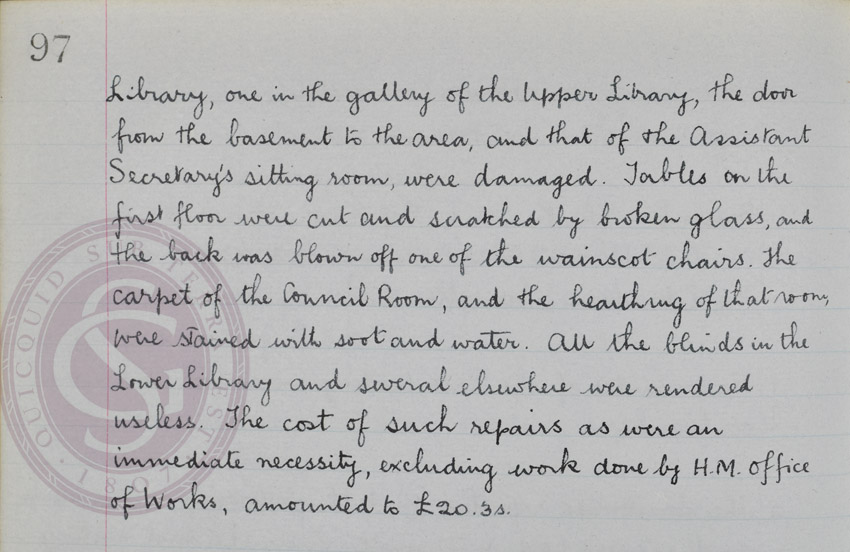 97
Library, one in the gallery of the Upper Library, the door
from the basement to the area, and that of the Assistant
Secretary's sitting room, were damaged. Tables on the
first floor were cut and scratched by broken glass, and
the back was blown off one of the wainscot chairs. The
carpet of the Council Room, and the hearthrug of that room,
were stained with soot and water. All the blinds in the
Lower Library and several elsewhere were rendered
useless. The cost of such repairs as were an
immediate necessity, excluding work done by H.M. Office
of Works, amounted to £20.3s.
QUICQUID SUB TERRA EST
· 1807 ·
GS